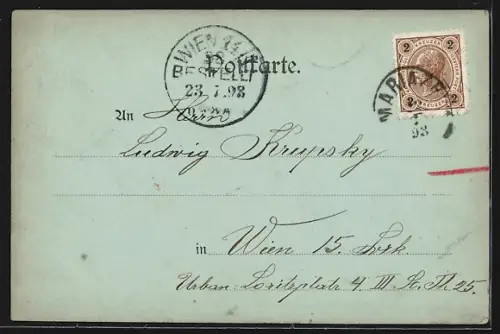 Postkarte.
WIEN
BESTELLT
23.7.98
2 KREUZER 2
2 2
MARIAZELL
98
An Herrn
Ludwig Krupsky
in Wien 15. Bzk.
Urban-Loritzplatz 4. III St. Th. 25.